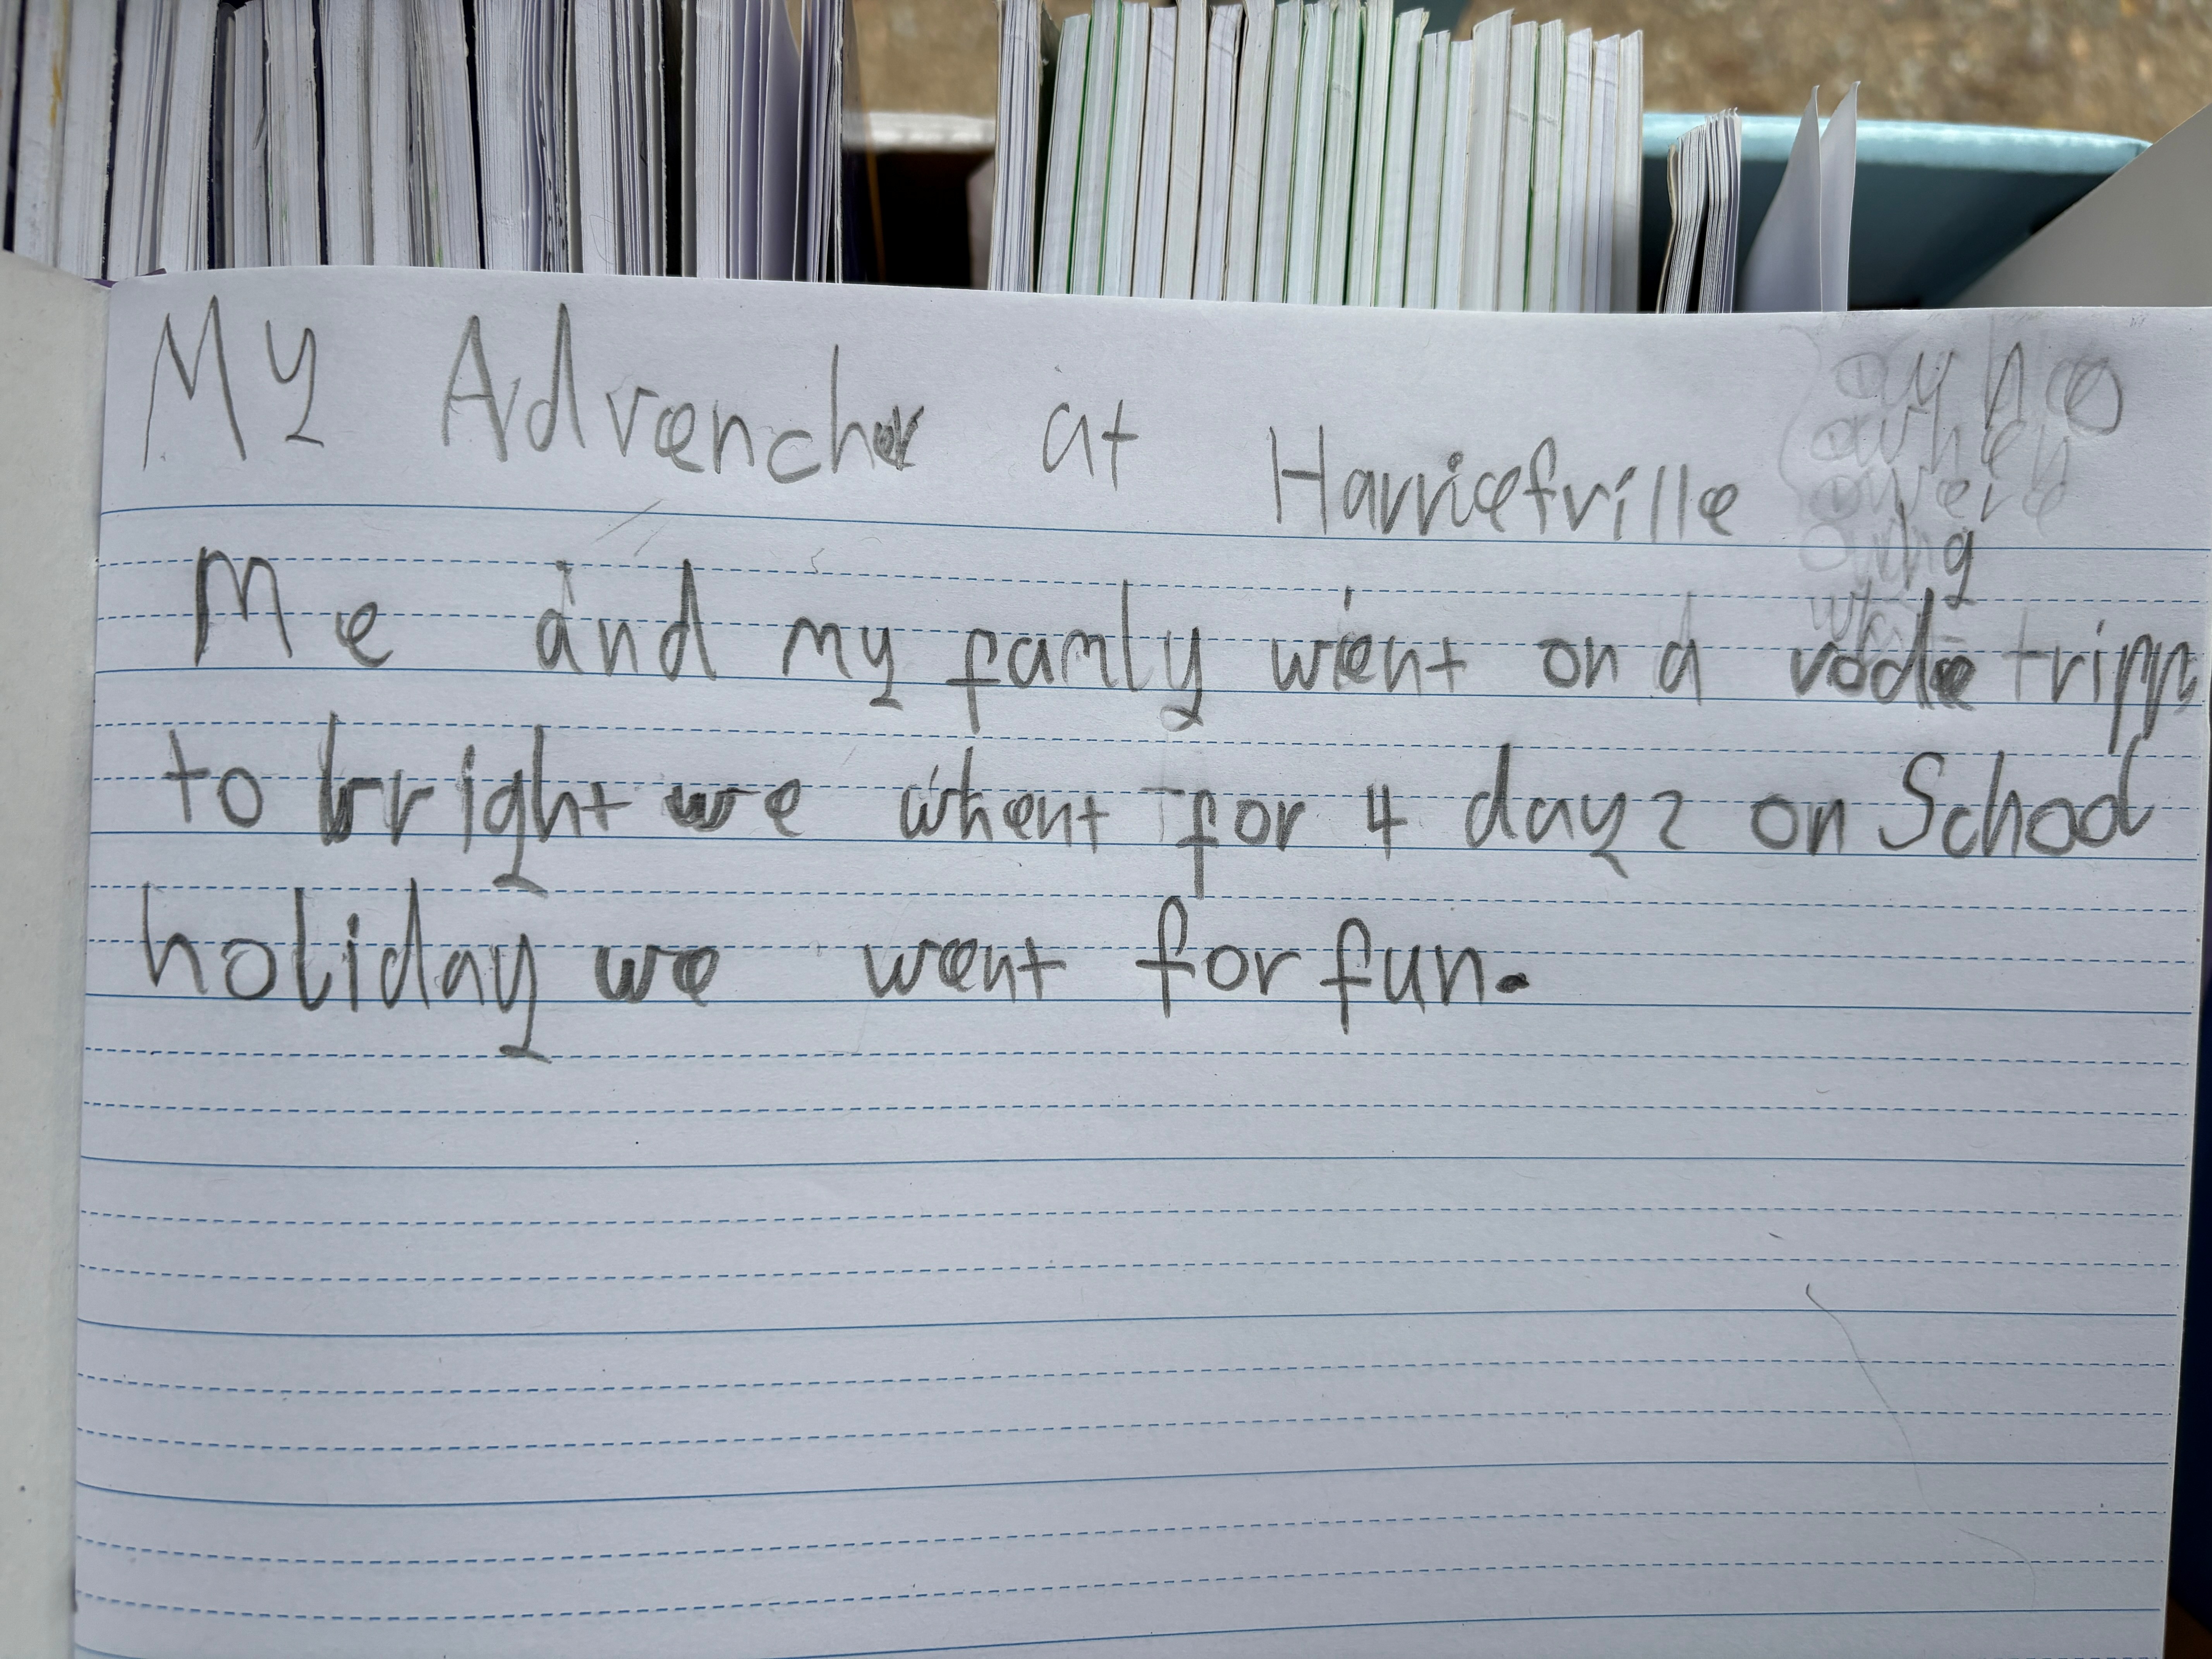 My Advencher at Harrietville
who
when
were
why
Me and my famly went on a rode tripp
to bright we whent for 4 days on School
holiday we went for fun.